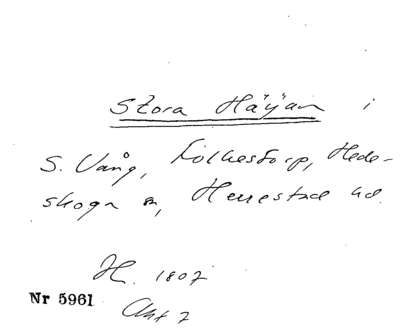 Stora Häyan i
S. Vång, Folkestorp, Hede-
skoga sn, Herrestad hd.
H. 1807
Nr 5961
Akt 7